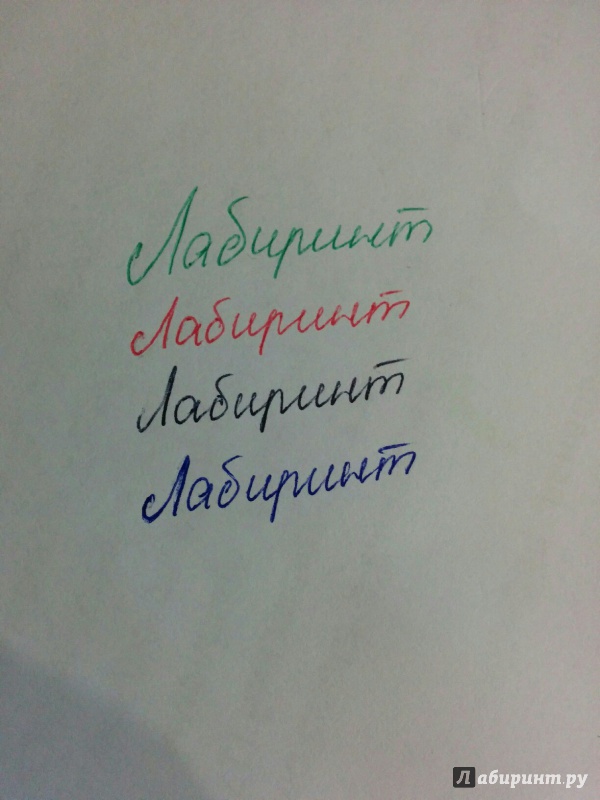 Лабиринт
Лабиринт
Лабиринт
Лабиринт
Лабиринт.ру